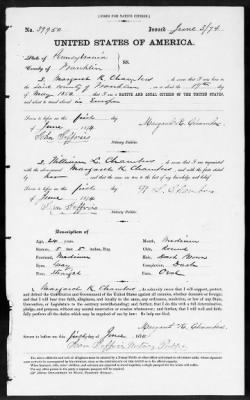 [FORM FOR NATIVE CITIZEN.]
No. 39950 Issued June 3/74
UNITED STATES OF AMERICA.
State of Pennsylvania
County of Franklin
SS.
I, Margaret K. Chambers do swear that I was born in
the said county of Franklin on the 19th day
of May 1850; that I am a NATIVE AND LOYAL CITIZEN OF THE UNITED STATES,
and about to travel abroad in Europe
Sworn to before me this first day
of June 1874
John Jeffries
Margaret K. Chambers
I, William L. Chambers do swear that I am acquainted
with the above-named Margaret K. Chambers and with the facts stated
by her
Sworn to before me this first day
of June 1874
John Jeffries
Description of
Age, 24 years.
Stature, 5 5 inches, Eng.
Forehead, Medium
Eyes, Gray
Nose, Straight
Mouth, Medium
Chin, Round
Hair, Dark Brown
Complexion, Dark
Face, Oval
I, Margaret K. Chambers do solemnly swear that I will support, protect,
and defend the Constitution and Government of the United States against all enemies, whether domestic or foreign;
and that I will bear true faith, allegiance, and loyalty to the same, any ordinance, resolution, or law of any State,
Convention, or Legislature to the contrary notwithstanding; and further, that I do this with a full determination,
pledge, and purpose, without any mental reservation or evasion whatsoever; and further, that I will well and faith-
fully perform all the duties which may be required of me by law: So help me God.
Margaret K. Chambers
Sworn to before me this first day of June 1874
John Jeffries Notary Public